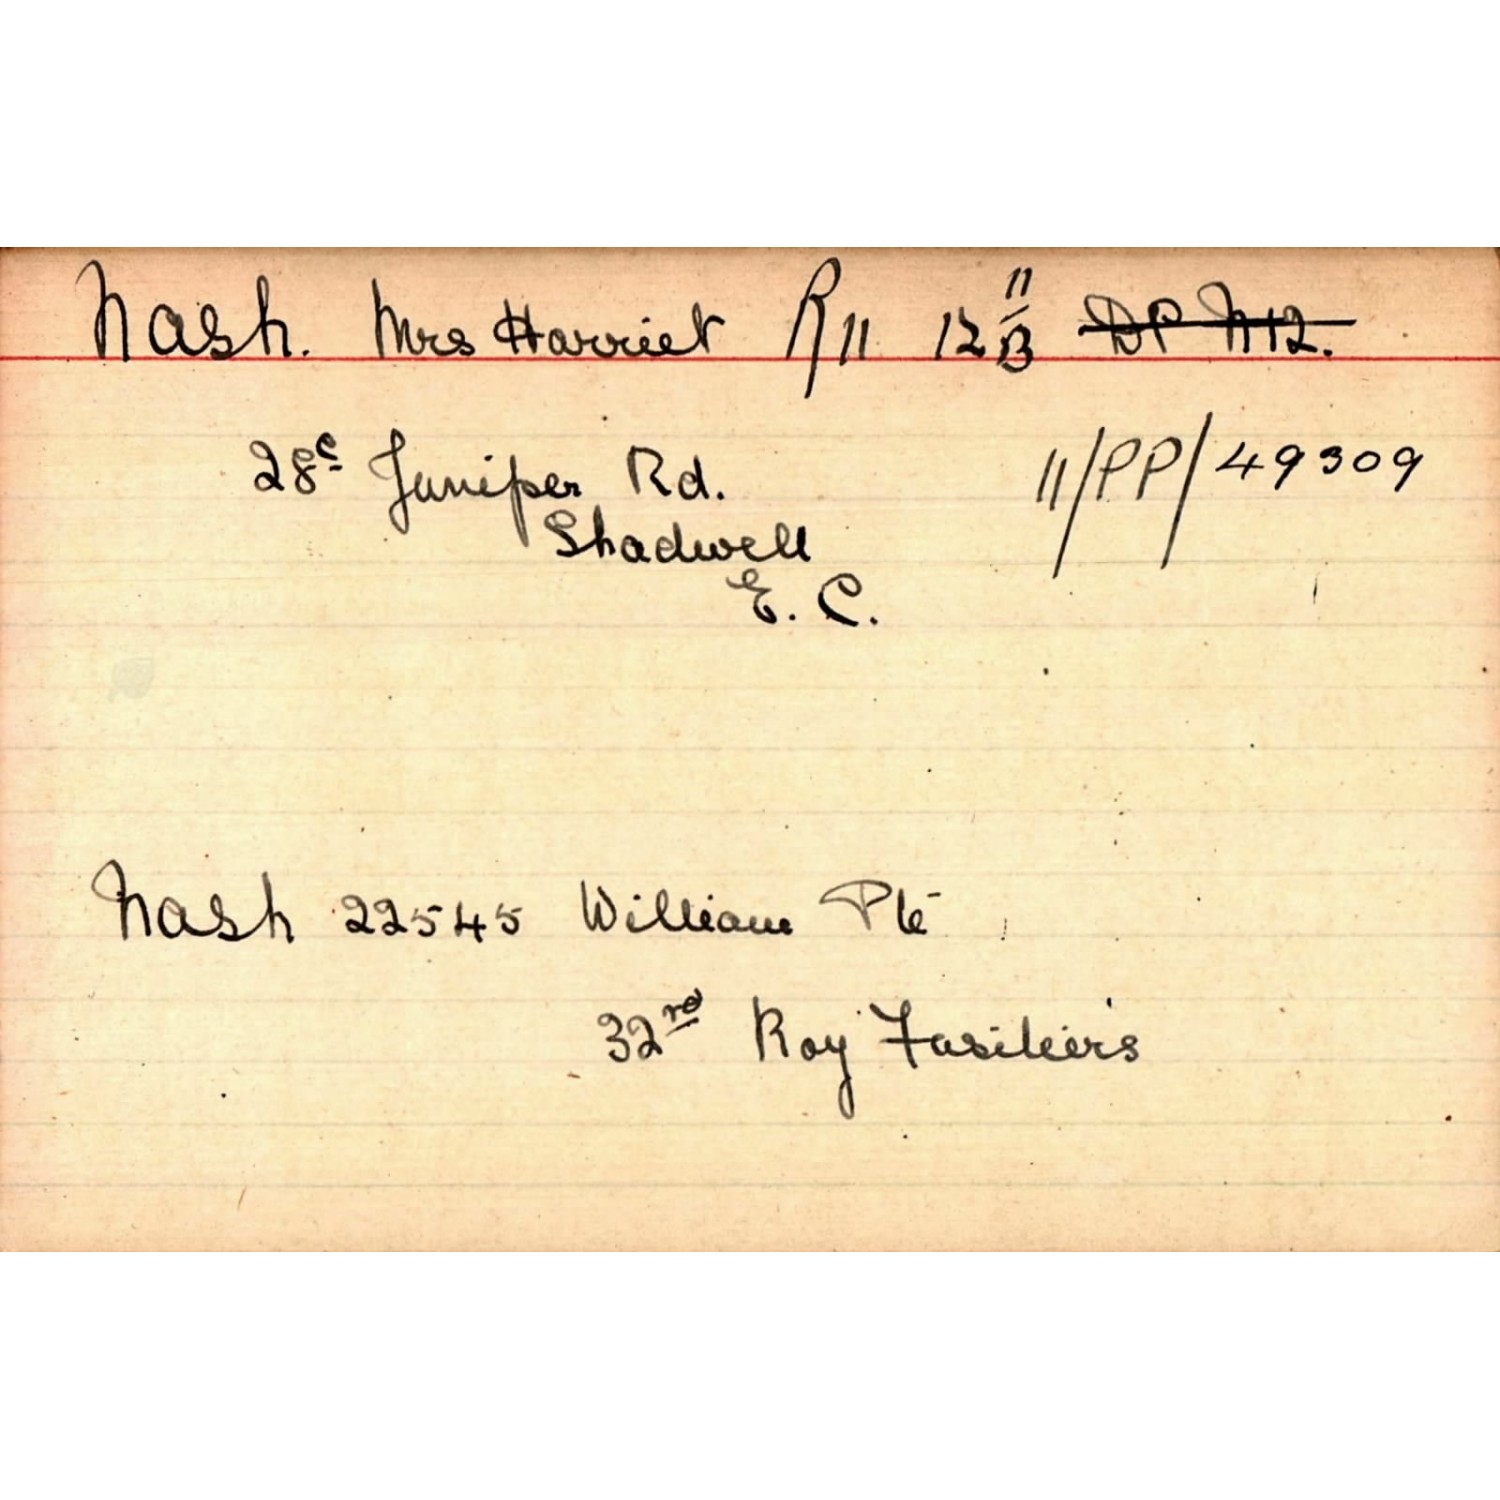 Nash. Mrs Harriet R11 12 11/13 DP N12.
28c Juniper Rd. 11/PP/49309
Shadwell
E. C.
Nash 22545 William Pte
32rd Roy Fusiliers